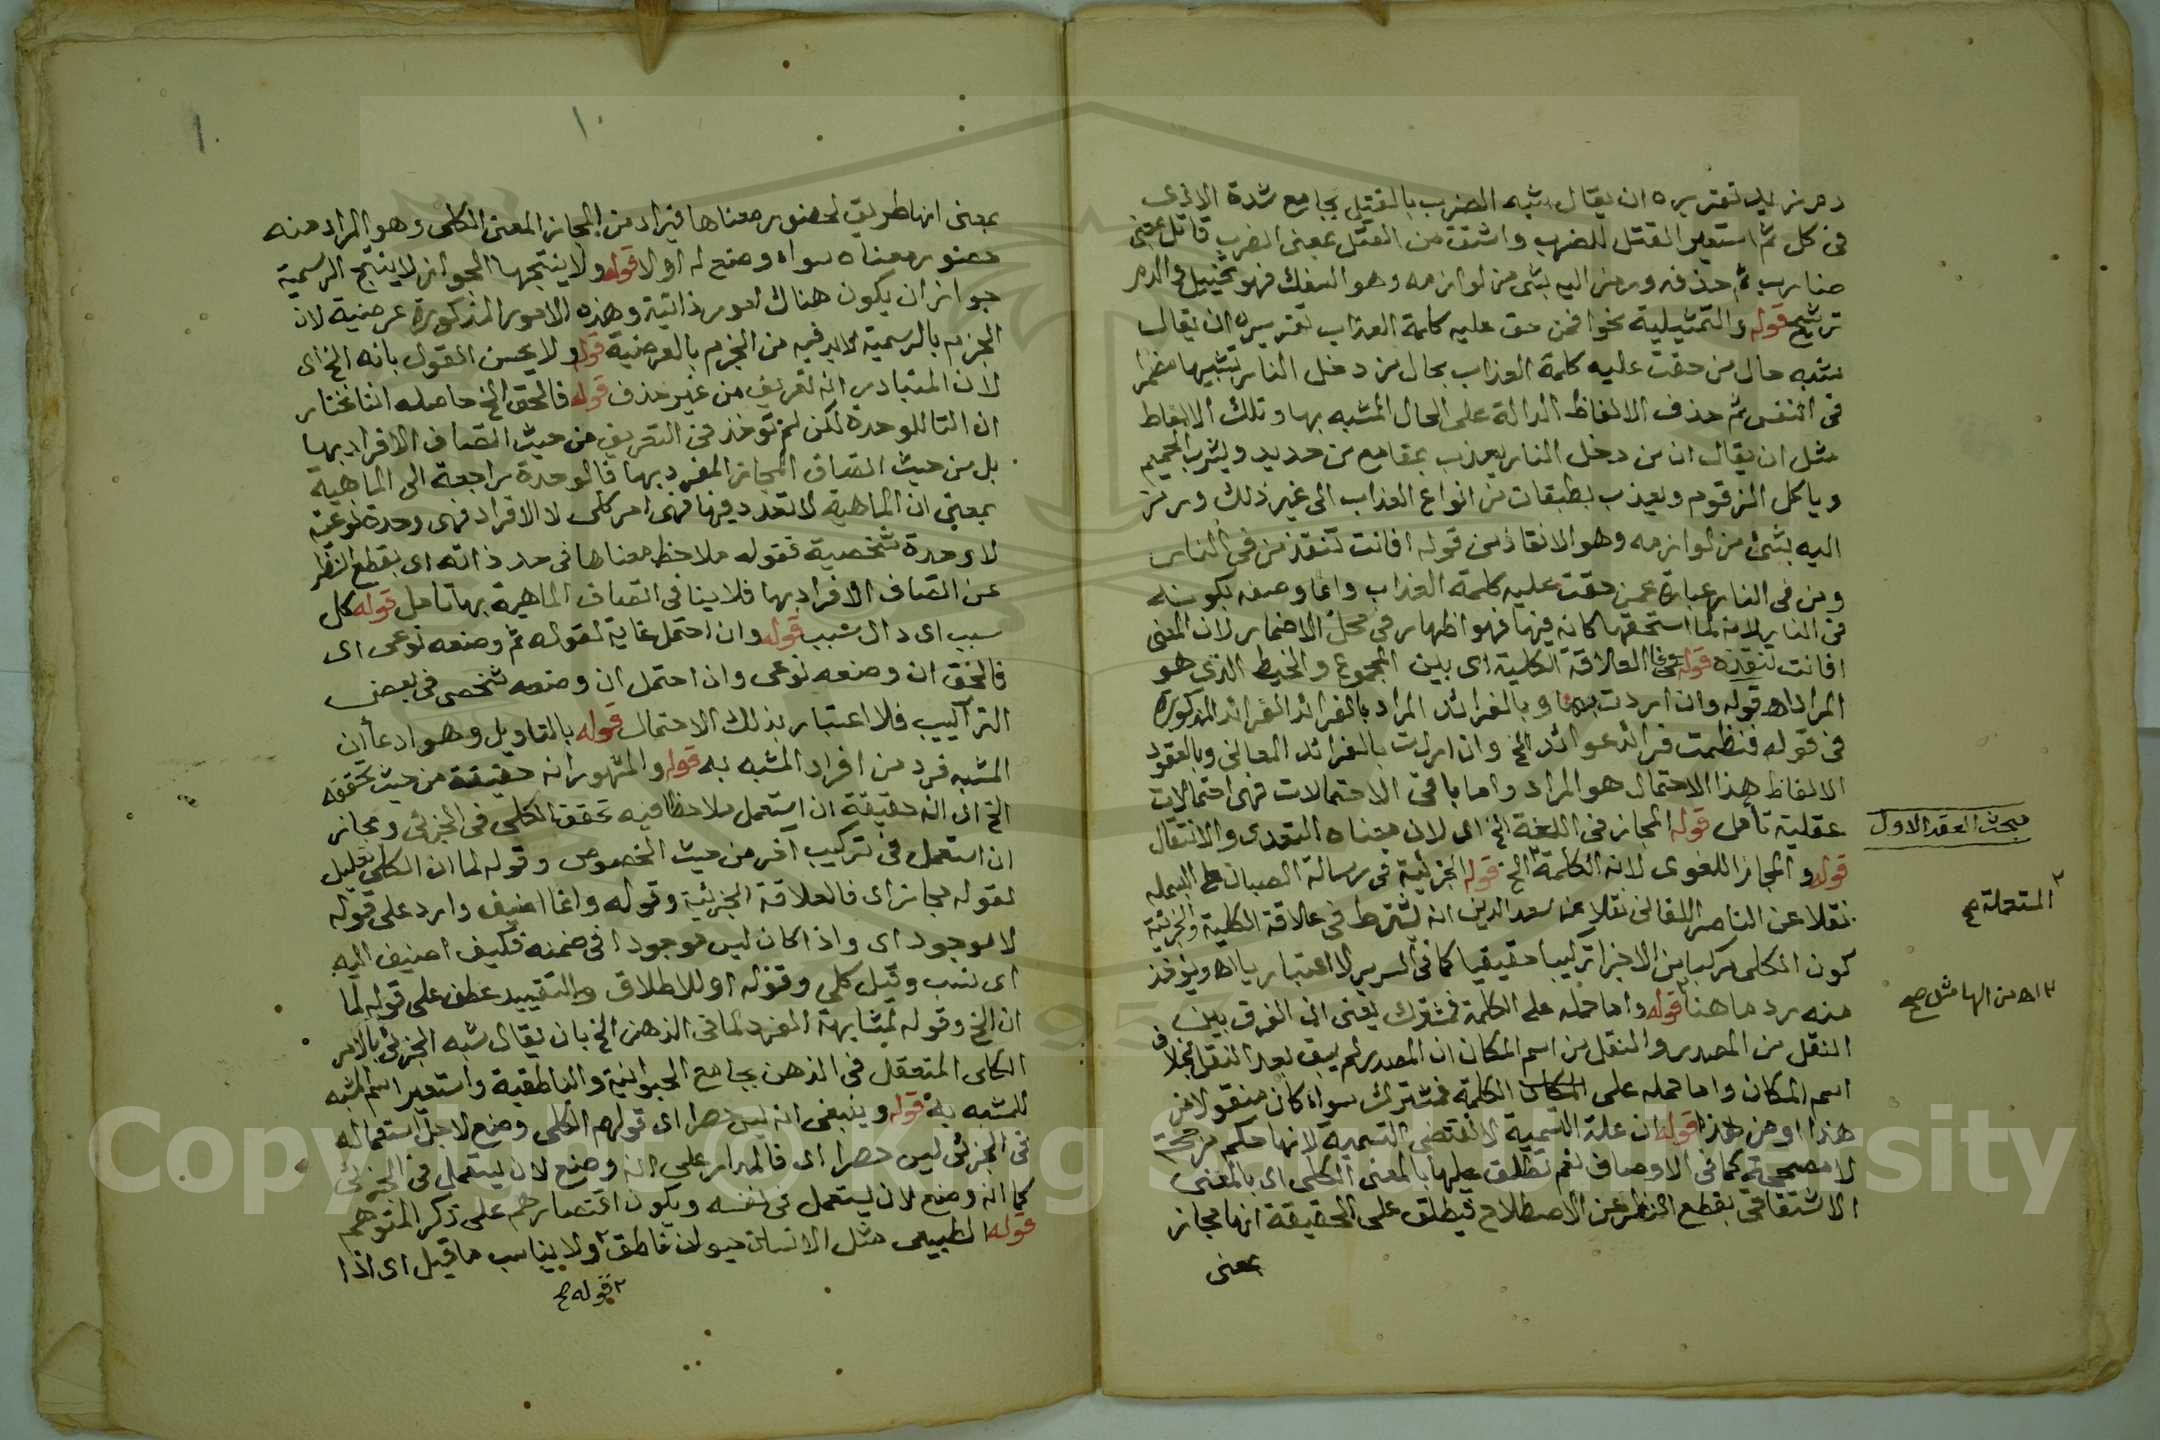 دم زيد تقريره ان يقال شبه الضرب بالقتل بجامع شدة الاذى
فى كل ثم استعير القتل للضرب واشتق من القتل بمعنى الضرب قاتل بمعنى
ضارب ثم حذفه ورمز اليه بشى من لوازمه وهو السفك فهو تخييل والدم
ترشيح قوله والتمثيلية نحو افمن حق عليه كلمة العذاب تقريره ان يقال
شبه حال من حقت عليه كلمة العذاب بحال من دخل النار تشبيها مضمرا
فى النفس ثم حذف الالفاظ الدالة على الحال المشبه بها وتلك الالفاظ
مثل ان يقال ان من دخل النار يعذب بمقامع من حديد ويشرب الحميم
وياكل الزقوم ويعذب بطبقات من انواع العذاب الى غير ذلك ورمز
اليه بشئ من لوازمه وهو الانقاذ من قوله افانت تنقذ من فى النار
ومن فى النار عبارة عمن حقت عليه كلمة العذاب وانما وصفه بكونه
فى النار لانه لما استحقها كانه فيها فهو اظهار فى محل الاضمار لان المعنى
افانت تنقذه قوله العلاقة الكلية اى بين المجموع والخيط الذى هو
المراد اه قوله وان اردت بها وبالفرائد المراد بالفرائد الفرائد المذكورة
فى قوله فنظمت فرائد عوائد الخ وان اردت بالفرائد المعانى وبالعقود
الالفاظ هذا الاحتمال هو المراد واما باقى الاحتمالات فهى احتمالات
عقلية تأمل قوله المجاز فى اللغة الخ اى لان معناه التعدى والانتقال
مبحث العقد الاول
قوله والمجاز اللغوى لانه الكلمة الخ قوله الجزئية فى رسالة الصبان على البسمله
٢ المستعملة صح
نقلا عن الناصر اللقانى نقلا عن سعد الدين انه يشترط فى علاقة الكلية والجزئية
كون الكلى مركبا من الاجزا تركيبا حقيقيا كما فى السرير لا اعتباريا اه ويؤخذ
٢ اه من الهامش صح
منه رد ما هنا قوله واما حمله على الكلمة فمشترك يعنى ان الفرق بين
النقل من المصدر والنقل من اسم المكان ان المصدر لم يبق بعد النقل بخلاف
اسم المكان واما حمله على المكان الكلمة فمشترك سواء كان منقولا من
هذا او من هذا قوله ان علة التسمية لا تقتضى التسمية لانها حكم مرجحة
لا مصححة كما فى الاوصاف نعم تطلق عليها بالمعنى الكلى اى بالمعنى
الاشتقاقى بقطع النظر عن الاصطلاح فيطلق على الحقيقة انها مجاز
بمعنى
١٠
١٠
بمعنى انها طريق لحضور معناها فيراد من المجاز المعنى الكلى وهو المراد منه
حضور معناه سواء وضع له اولا قوله ولا ينتجها الجواز لا ينتج الرسمية
جواز ان يكون هناك امور ذاتية وهذه الامور المذكورة عرضية لان
الجزم بالرسمية لابد فيه من الجزم بالعرضية قوله ولا يحسن القول بانه الخ اى
لان المتبادر انه تعريف من غير حذف قوله فالحق الخ حاصله اننا نختار
ان التا للوحدة لكن لم تؤخذ فى التعريف من حيث اتصاف الافراد بها
بل من حيث اتصاف المجاز المفرد بها فالوحدة راجعة الى الماهية
بمعنى ان الماهية لا تعدد فيها فهى امر كلى لا الافراد فهى وحدة نوعية
لا وحدة شخصية فقوله ملاحظ معناها فى حد ذاته اى بقطع النظر
عن اتصاف الافراد بها فلا ينافى اتصاف الماهية بها تامل قوله كل
سبب اى دال سبب قوله وان احتمل غاية لقوله ثم وضعه نوعى اى
فالحق ان وضعه نوعى وان احتمل ان وضعه شخصى فى بعض
التراكيب فلا اعتبار بذلك الاحتمال قوله بالتاويل وهو ادعا أن
المشبه فرد من افراد المشبه به قوله والمشهور انه حقيقة من حيث تحققه
الخ اى انه حقيقة ان استعمل ملاحظا فيه تحقق الكلى فى الجزئى ومجاز
ان استعمل فى تركيب آخر من حيث الخصوص وقوله لما ان الكلى تعليل
لقوله مجاز اى فالعلاقة الجزئية وقوله وانما اضيف وارد على قوله
لا موجود اى واذا كان ليس موجودا فى ضمنه فكيف اضيف اليه
اى نسب وقيل كلى وقوله او للاطلاق والتقييد عطف على قوله لما
ان الخ وقوله لمشابهة المفرد لما فى الذهن الخ بان يقال شبه الجزئى بالامر
الكلى المتعقل فى الذهن بجامع الحيوانية والناطقية واستعير اسم المشبه
للمشبه به قوله وينبغى انه ليس حصرا اى قولهم الكلى وضع لاجل استعماله
فى الجزئى ليس حصرا اى فالمدار على انه وضع لان يستعمل فى الجزئى
كما انه وضع لان يستعمل فى نفسه ويكون اقتصارهم على ذكر المتوهم
قوله الطبيعى مثل الانسان حيوان ناطق ٢ ولا يناسب ما قيل اى اذا
٢ قوله صح